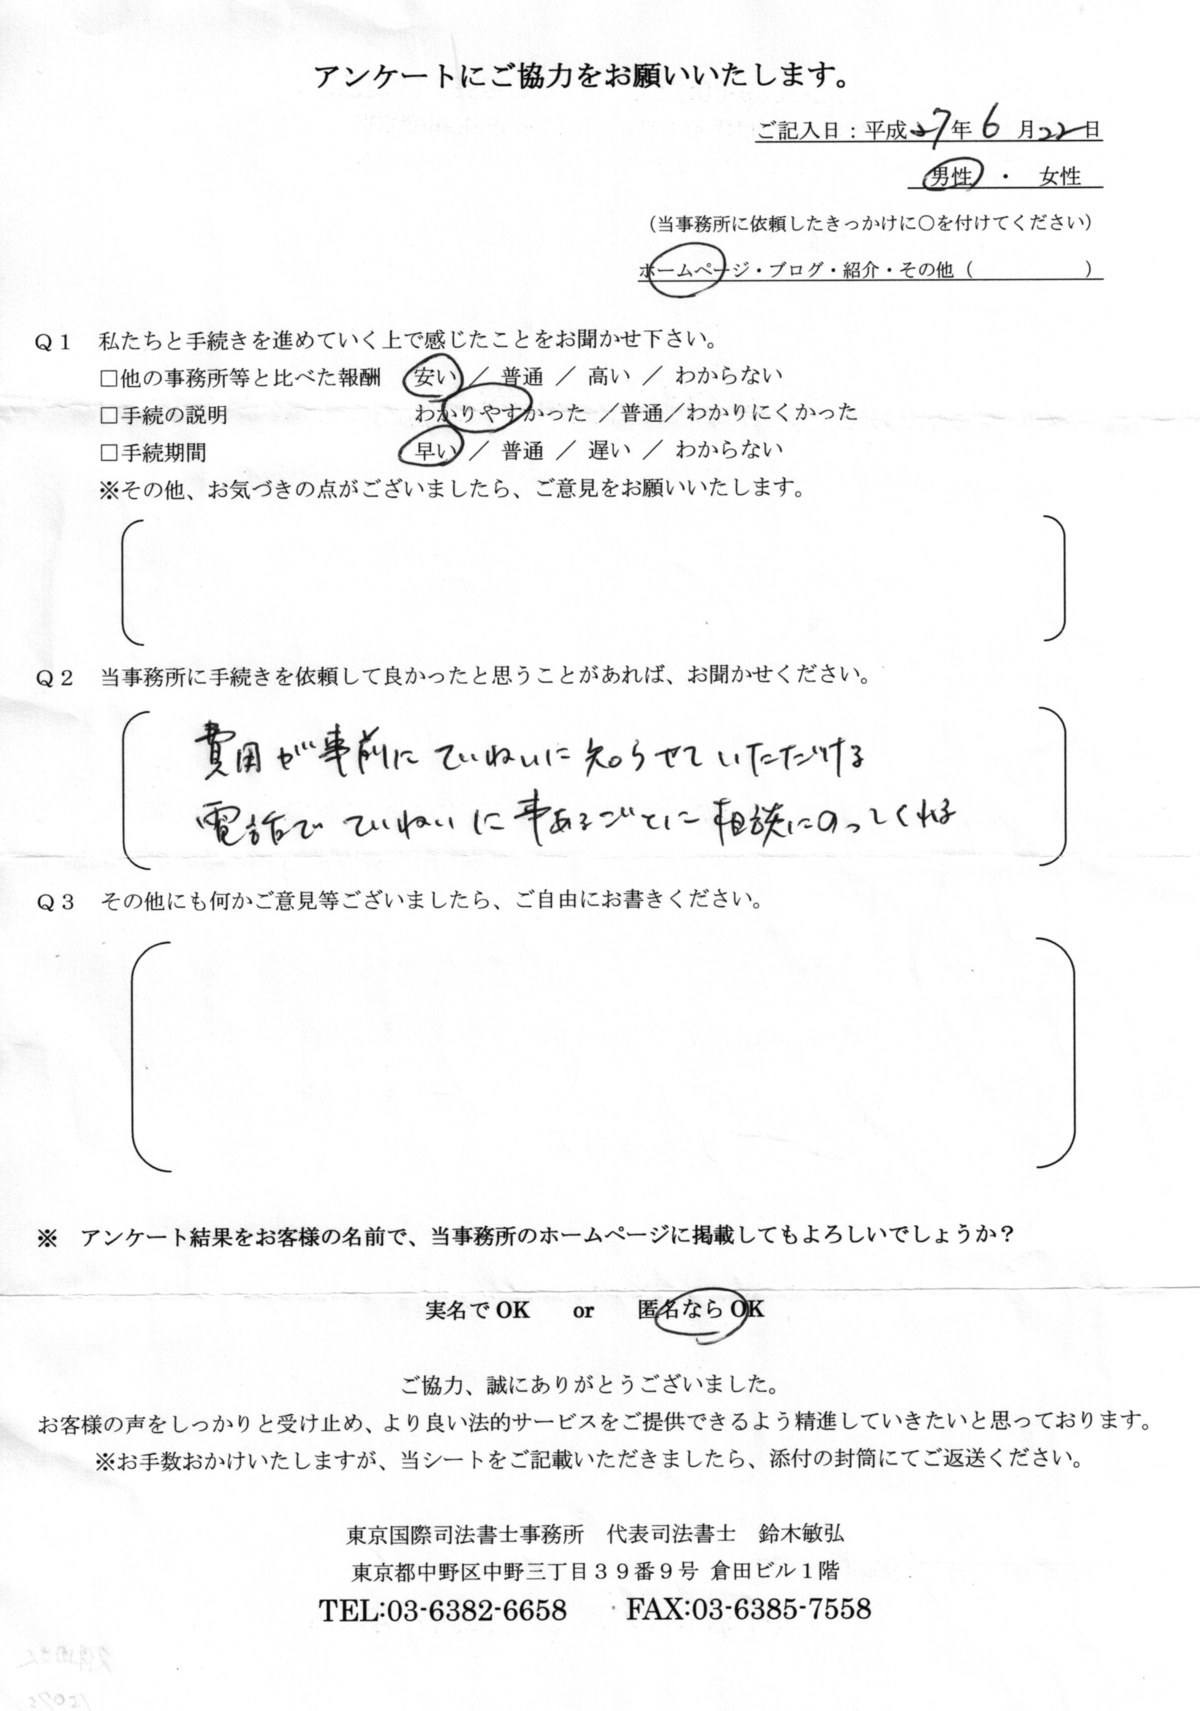 アンケートにご協力をお願いいたします。
ご記入日：平成27年6月22日
男性 ・ 女性
（当事務所に依頼したきっかけに〇を付けてください）
ホームページ・ブログ・紹介・その他（　　　　　）
Ｑ１　私たちと手続きを進めていく上で感じたことをお聞かせ下さい。
□他の事務所等と比べた報酬　安い ／ 普通 ／ 高い ／ わからない
□手続の説明　わかりやすかった ／普通／わかりにくかった
□手続期間　早い ／ 普通 ／ 遅い ／ わからない
※その他、お気づきの点がございましたら、ご意見をお願いいたします。
Ｑ２　当事務所に手続きを依頼して良かったと思うことがあれば、お聞かせください。
費用が事前にていねいに知らせていただける
電話でていねいに事あるごとに相談にのってくれる
Ｑ３　その他にも何かご意見等ございましたら、ご自由にお書きください。
※　アンケート結果をお客様の名前で、当事務所のホームページに掲載してもよろしいでしょうか？
実名で OK　or　匿名なら OK
ご協力、誠にありがとうございました。
お客様の声をしっかりと受け止め、より良い法的サービスをご提供できるよう精進していきたいと思っております。
※お手数おかけいたしますが、当シートをご記載いただきましたら、添付の封筒にてご返送ください。
東京国際司法書士事務所　代表司法書士　鈴木敏弘
東京都中野区中野三丁目３９番９号 倉田ビル１階
TEL:03-6382-6658　FAX:03-6385-7558